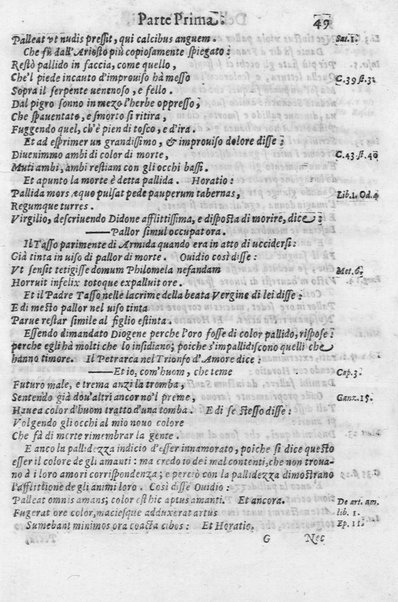 Parte Prima. 49
Palleat vt nudis pressit, qui calcibus anguem. Sat.1.
Che fù dall'Ariosto più copiosamente spiegato:
Restò pallido in faccia, come quello,
Che'l piede incauto d'improuiso hà messo C.39.st.32
Sopra il serpente uenenoso, e fello.
Dal pigro sonno in mezo l'herbe oppresso,
Che spauentato, e smorto si ritira,
Fuggendo quel, ch'è pien di tosco, e d'ira.
Et ad esprimer un grandissimo, & improuiso dolore disse:
Diuenimmo ambi di color di morte, C.43.st.40
Muti ambi, ambi restiam con gli occhi bassi.
Et apunto la morte è detta pallida. Horatio:
Pallida mors æquo pulsat pede pauperum tabernas, Lib.1.Od.4
Regumque turres.
Virgilio, descriuendo Didone afflittissima, e disposta di morire, dice:
——Pallor simul occupat ora.
Il Tasso parimente di Armida quando era in atto di uccidersi:
Già tinta in uiso di pallor di morte. Ouidio così disse:
Vt sensit tetigisse domum Philomela nefandam Met.6.
Horruit infelix totoque expalluit ore.
Et il Padre Tasso nelle lacrime della beata Vergine di lei disse:
E di mesto pallor nel uiso tinta
Parue restar simile al figlio estinta.
Essendo dimandato Diogene perche l'oro fosse di color pallido, rispose:
perche egli hà molti che lo insidiano; poiche s'impallidiscono quelli che
hanno timore. Il Petrarca nel Trionfo d'Amore dice:
——Et io, com'huom, che teme Cap.3.
Futuro male, e trema anzi la tromba,
Sentendo già dou'altri ancor no'l preme, Canz.15.
Hauea color d'huom tratto d'una tomba. E di se stesso disse:
Volgendo gli occhi al mio nouo colore
Che fà di morte rimembrar la gente.
E anco la pallidezza indicio d'esser innamorato, poiche si dice questo
esser il colore de gli amanti: ma credo io de mal contenti, che non troua-
no à i loro amori corrispondenza; e perciò con la pallidezza dimostrano
l'afflittione de gli animi loro. Così disse Ouidio:
Palleat omnis amans; color est hic aptus amanti. Et ancora. De art. am.
Fugerat ore color, maciesque adduxerat artus lib. 1.
Sumebant minimos ora coacta cibos: Et Horatio. Ep. 11.
G Nec